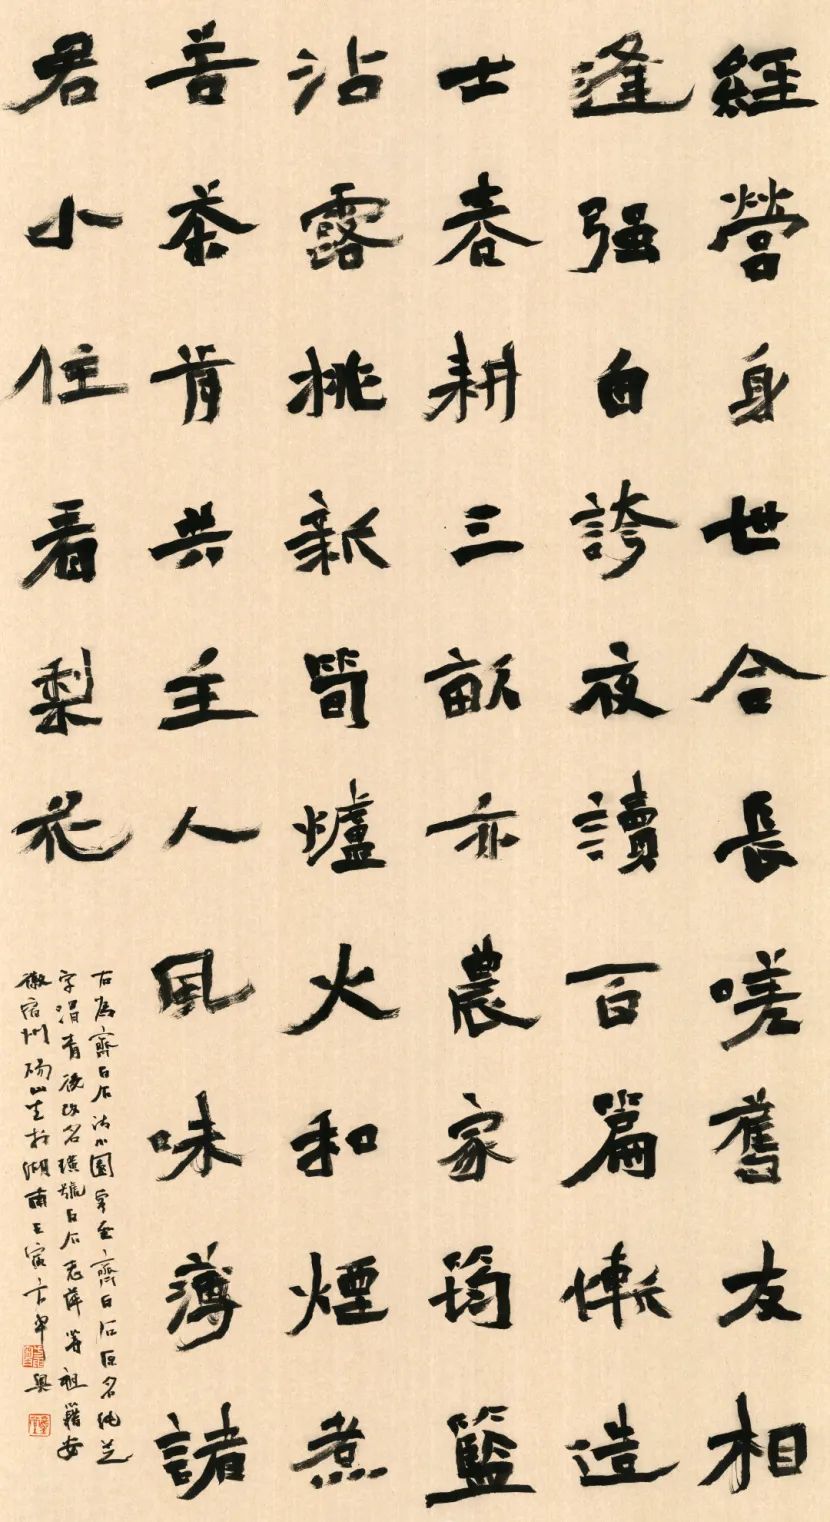 經營身世合長嗟舊友相
逢强自誇夜讀百篇慚造
士春耕三畝亦農家筠籃
沾露挑新筍爐火和煙煮
苦茶肯共主人風味薄諸
君小住看梨花
右為齊白石詩小園客至齊白石原名純芝
字渭青後改名璜號白石老萍等祖籍安
徽宿州碭山生於湖南壬寅